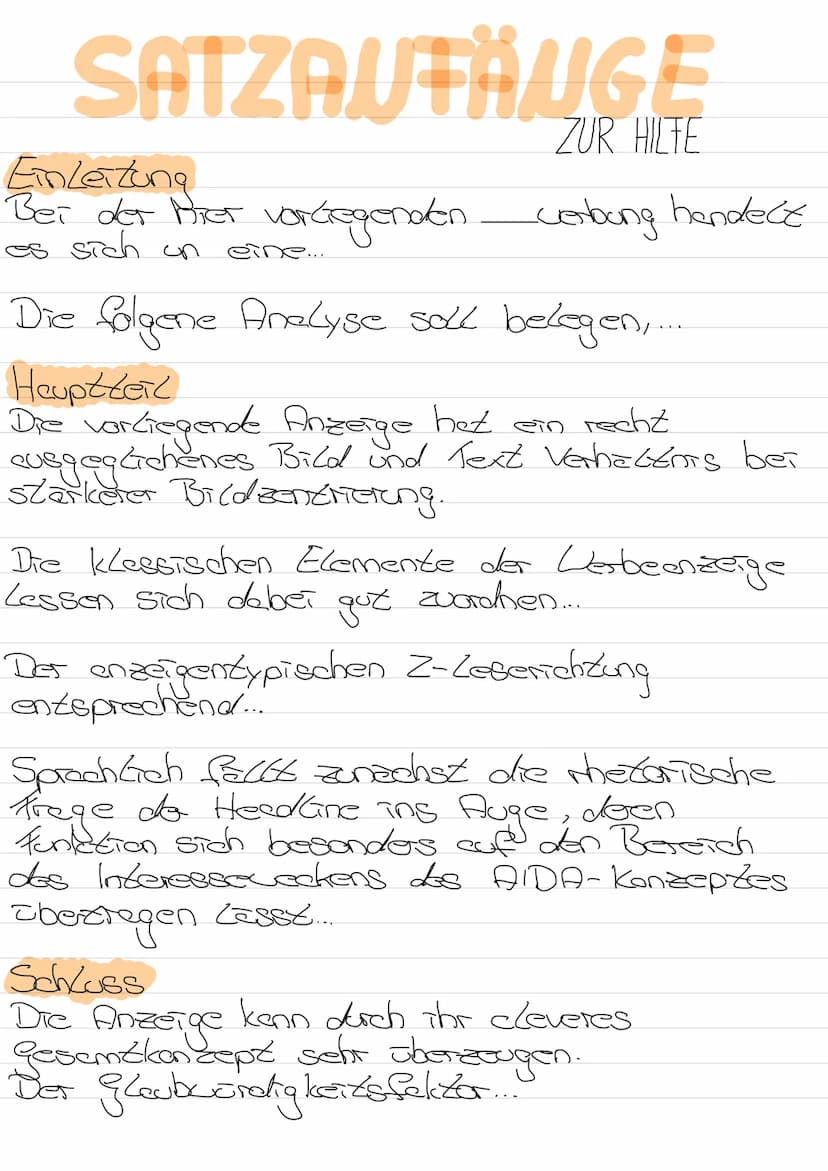 SATZANFÄNGE
ZUR HILFE
Einleitung
Bei der hier vorliegenden ___werbung handelt
es sich um eine...
Die folgene Analyse soll belegen,...
Hauptteil
Die vorliegende Anzeige hat ein recht
ausgeglichenes Bild und Text Verhältnis bei
stärkerer Bildzentrierung.
Die klassischen Elemente der Werbeanzeige
lassen sich dabei gut zuordnen...
Der anzeigentypischen Z-Leserichtung
entsprechend...
Sprachlich fällt zunächst die rhetorische
Frage der Headline ins Auge, deren
Funktion sich besonders auf den Bereich
des Interesseweckens des AIDA-Konzeptes
übertragen lässt...
Schluss
Die Anzeige kann durch ihr cleveres
Gesamtkonzept sehr überzeugen.
Der Glaubwürdigkeitsfaktor...